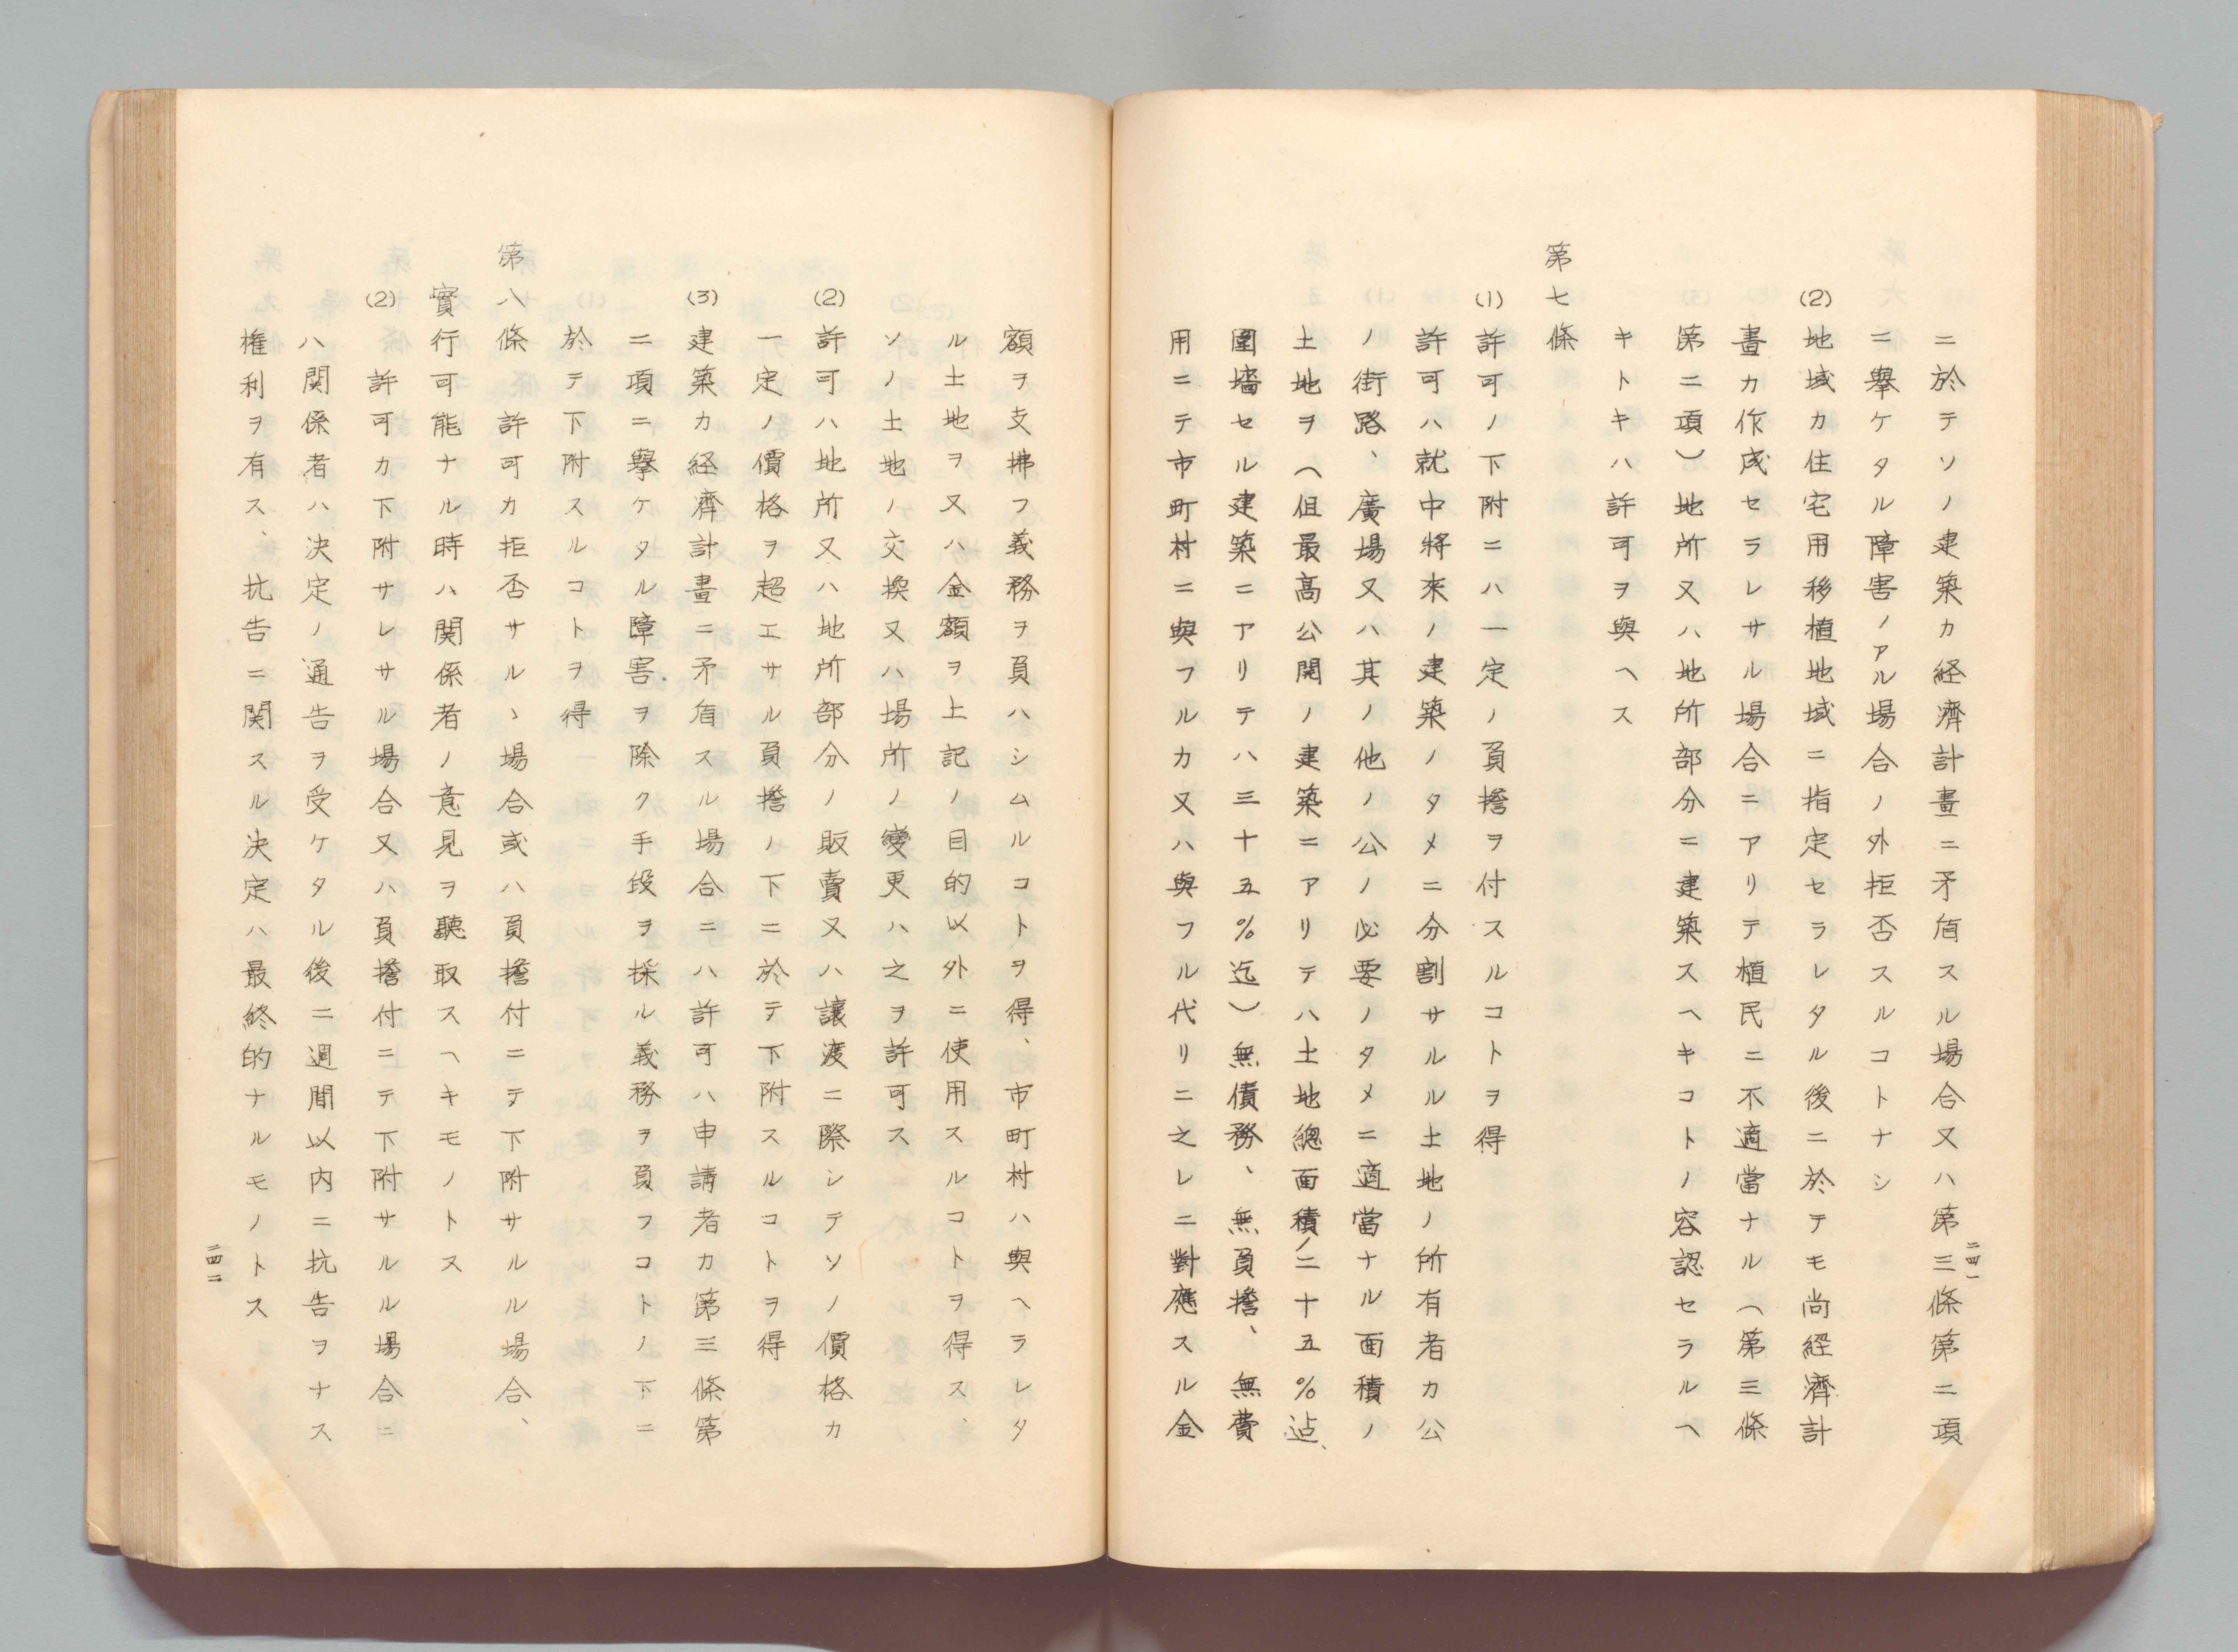 ニ於テソノ建築カ経濟計畫ニ矛盾スル場合又ハ第三條第二項
ニ擧ケタル障害ノアル場合ノ外拒否スルコトナシ
(2)地域カ住宅用移植地域ニ指定セラレタル後ニ於テモ尚経濟計
畫カ作成セラレサル場合ニアリテ植民ニ不適當ナル(第三條
第二項)地所又ハ地所部分ニ建築スヘキコトノ容認セラルヘ
キトキハ許可ヲ與ヘス
第七條
(1)許可ノ下附ニハ一定ノ負擔ヲ付スルコトヲ得
許可ハ就中將來ノ建築ノタメニ分割サルル土地ノ所有者カ公
ノ街路、廣場又ハ其ノ他ノ公ノ必要ノタメニ適當ナル面積ノ
土地ヲ(但最高公開ノ建築ニアリテハ土地總面積ノ二十五%迠、
圍墻セル建築ニアリテハ三十五%迄)無債務、無負擔、無費
用ニテ市町村ニ與フルカ又ハ與フル代リニ之レニ對應スル金
二四一
額ヲ支拂フ義務ヲ負ハシムルコトヲ得、市町村ハ與ヘラレタ
ル土地ヲ又ハ金額ヲ上記ノ目的以外ニ使用スルコトヲ得ス、
ソノ土地ノ交換又ハ場所ノ變更ハ之ヲ許可ス
(2)許可ハ地所又ハ地所部分ノ販賣又ハ讓渡ニ際シテソノ價格カ
一定ノ價格ヲ超エサル負擔ノ下ニ於テ下附スルコトヲ得
(3)建築カ経濟計畫ニ矛盾スル場合ニハ許可ハ申請者カ第三條第
二項ニ擧ケタル障害ヲ除ク手段ヲ採ル義務ヲ負フコトノ下ニ
於テ下附スルコトヲ得
第八條 許可カ拒否サルヽ場合或ハ負擔付ニテ下附サルル場合、
實行可能ナル時ハ関係者ノ意見ヲ聽取スヘキモノトス
(2)許可カ下附サレサル場合又ハ負擔付ニテ下附サルル場合ニ
ハ関係者ハ決定ノ通告ヲ受ケタル後二週間以内ニ抗告ヲナス
権利ヲ有ス、抗告ニ関スル決定ハ最終的ナルモノトス
二四二